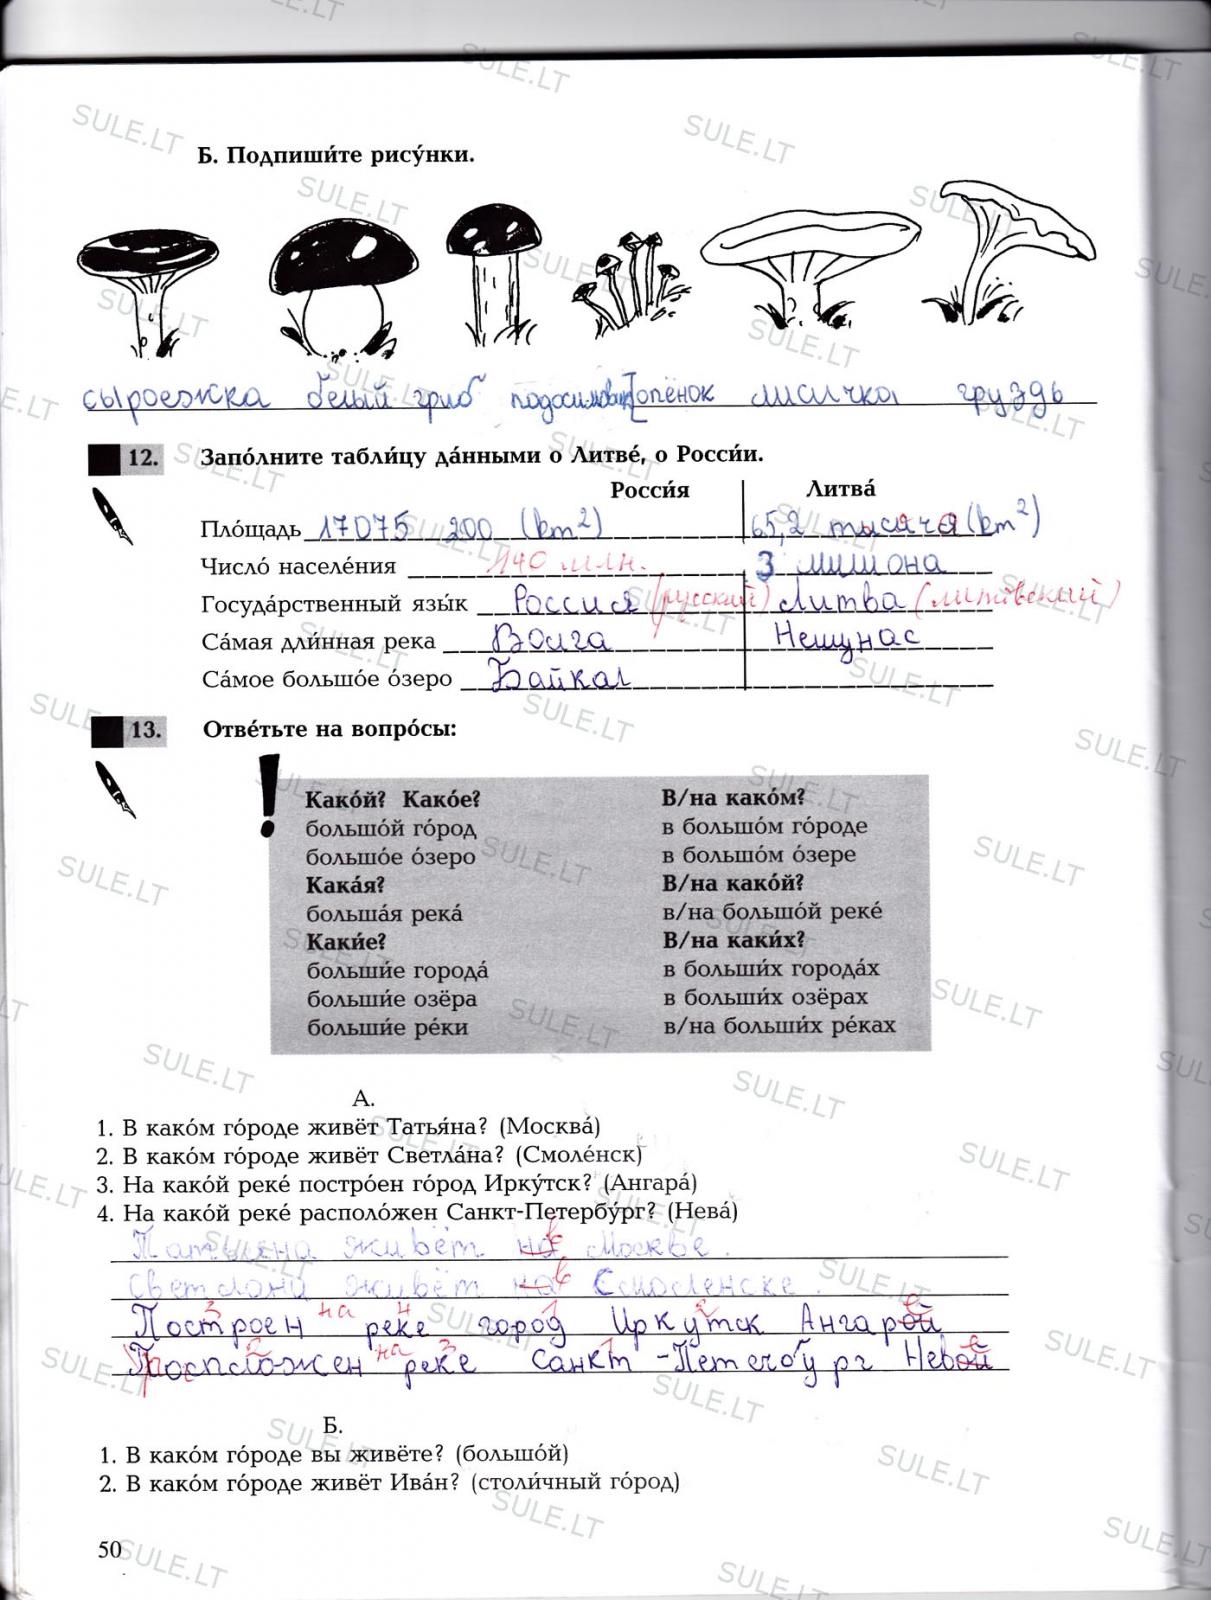 Б. Подпиши́те рису́нки.
сыроежка белый гриб подосиновик опёнок лисичка груздь
12. Запо́лните табли́цу да́нными о Литве́, о Росси́и.
Росси́я Литва́
Пло́щадь 17075 200 (km²) 65,2 тысяча (km²)
Число́ населе́ния 140 млн. 3 милиона
Госуда́рственный язы́к Россия (русский) Литва (литовский)
Са́мая дли́нная река Волга Немунас
Са́мое большо́е о́зеро Байкал
13. Отве́тьте на вопро́сы:
!
Како́й? Како́е? В/на како́м?
большо́й го́род в большо́м го́роде
большо́е о́зеро в большо́м о́зере
Кака́я? В/на како́й?
больша́я река́ в/на большо́й реке́
Каки́е? В/на каки́х?
больши́е города́ в больши́х города́х
больши́е озёра в больши́х озёрах
больши́е ре́ки в/на больши́х ре́ках
А.
1. В како́м го́роде живёт Татья́на? (Москва́)
2. В како́м го́роде живёт Светла́на? (Смоле́нск)
3. На како́й реке́ постро́ен го́род Ирку́тск? (Ангара́)
4. На како́й реке́ располо́жен Санкт-Петербу́рг? (Нева́)
Татьяна живёт на в Москве.
живёт на в Смоленске.
3 на 4 1 2 е
Построен реке город Иркутск Ангарой
2 на 3 1 е
реке Санкт - Невой
Б.
1. В како́м го́роде вы живёте? (большо́й)
2. В како́м го́роде живёт Ива́н? (столи́чный го́род)
50
SULE.LT